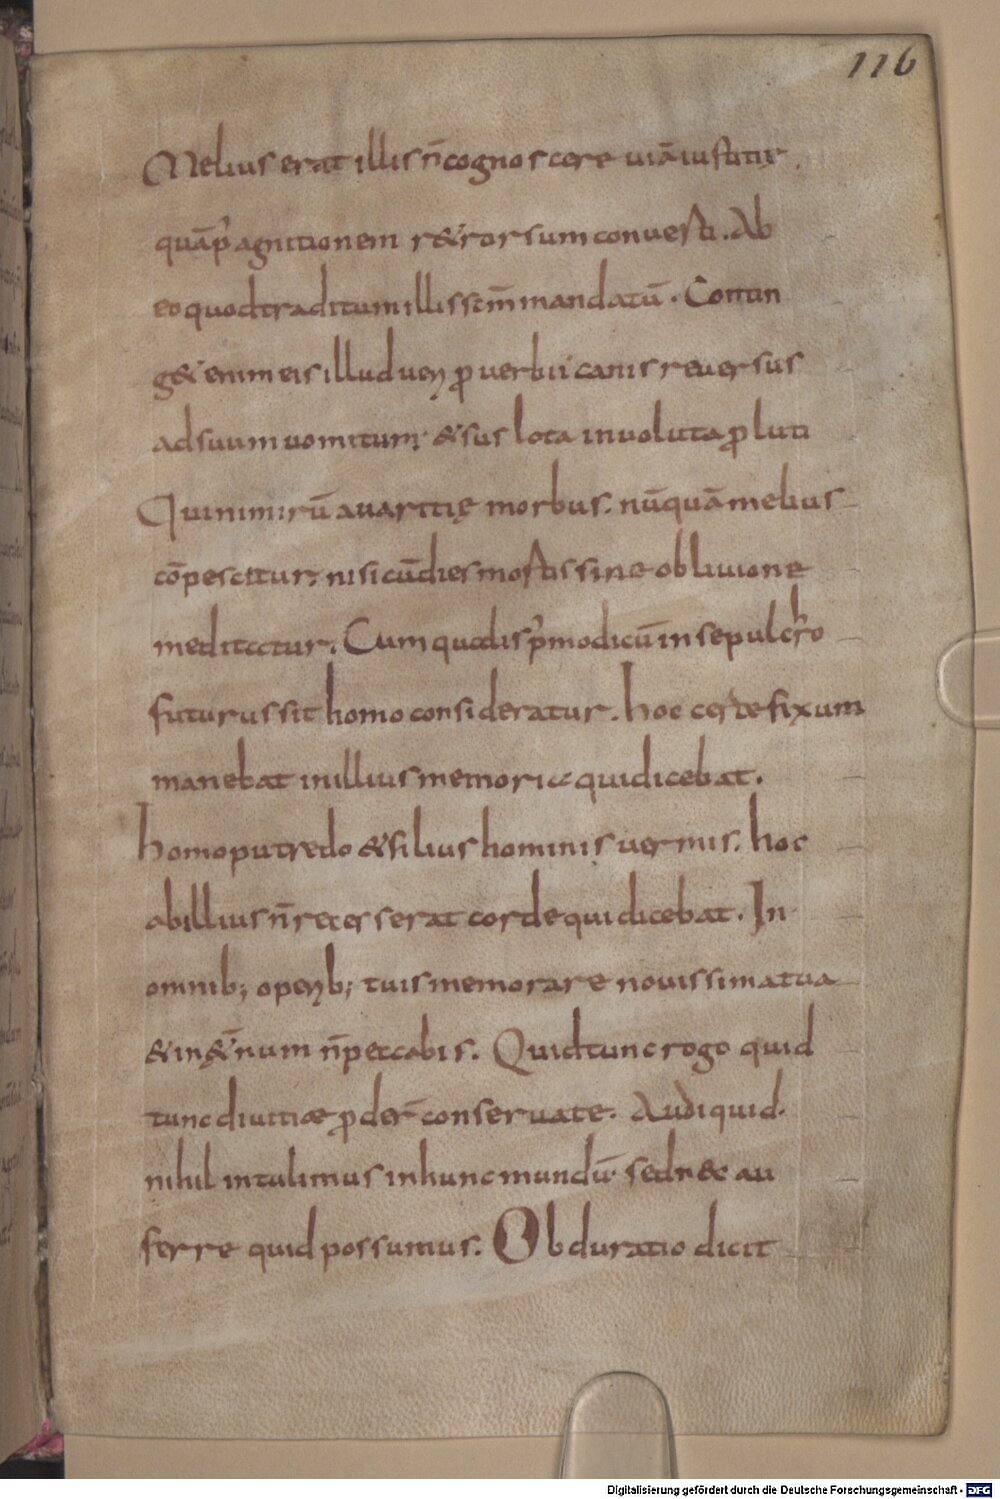 116
Melius erat illis n̄ cognoscere uiā iustitię.
quā p̓ agnitionem r&rorsum conuerti. Ab
eo quod traditum illis sc̄m mandatū. Contin
g& enim eis illud ueri ꝓuerbii canis reuersus
ad suum uomitum; & sus lota in uolutaꝓ luti
Qui nimirū auaritię morbus. nūquā melius
cōpescitur; nisi cū dies mortis sine obliuione
meditetur; Cum qualis p̓ modicū in sepulchro
futurus sit homo consideratur. hoc certe fixum
manebat in illius memoria qui dicebat.
homo putredo & filius hominis uermis. hoc
ab illius n̄ recesserat corde qui dicebat. In
omnib; operib; tuis memorare nouissima tua
& in &̄num n̄ peccabis. Quid tunc rogo quid
tunc diuitiae ꝓder̄ conseruate. Audi quid.
nihil intulimus in hunc mundū sed nec au
ferre quid possumus. Obduratio dicit
Digitalisierung gefördert durch die Deutsche Forschungsgemeinschaft - DFG